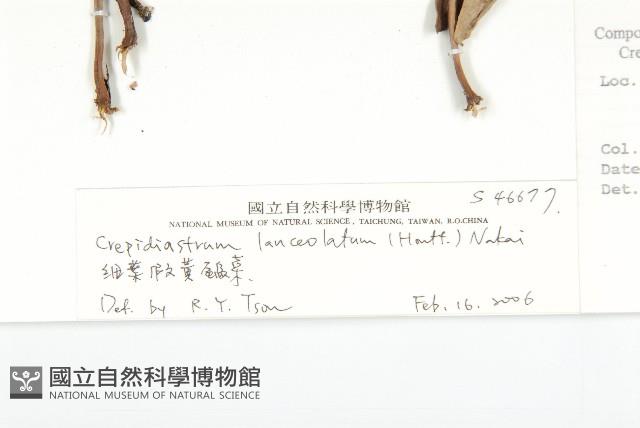 Compo
Cre
Loc.
Col.
Date
Det.
國立自然科學博物館
S 46677.
NATIONAL MUSEUM OF NATURAL SCIENCE, TAICHUNG, TAIWAN, R.O.CHINA
Crepidiastrum lanceolatum (Houtt.) Nakai
細葉假黃鵪菜.
Det. by R. Y. Tsou
Feb. 16. 2006
國立自然科學博物館
NATIONAL MUSEUM OF NATURAL SCIENCE